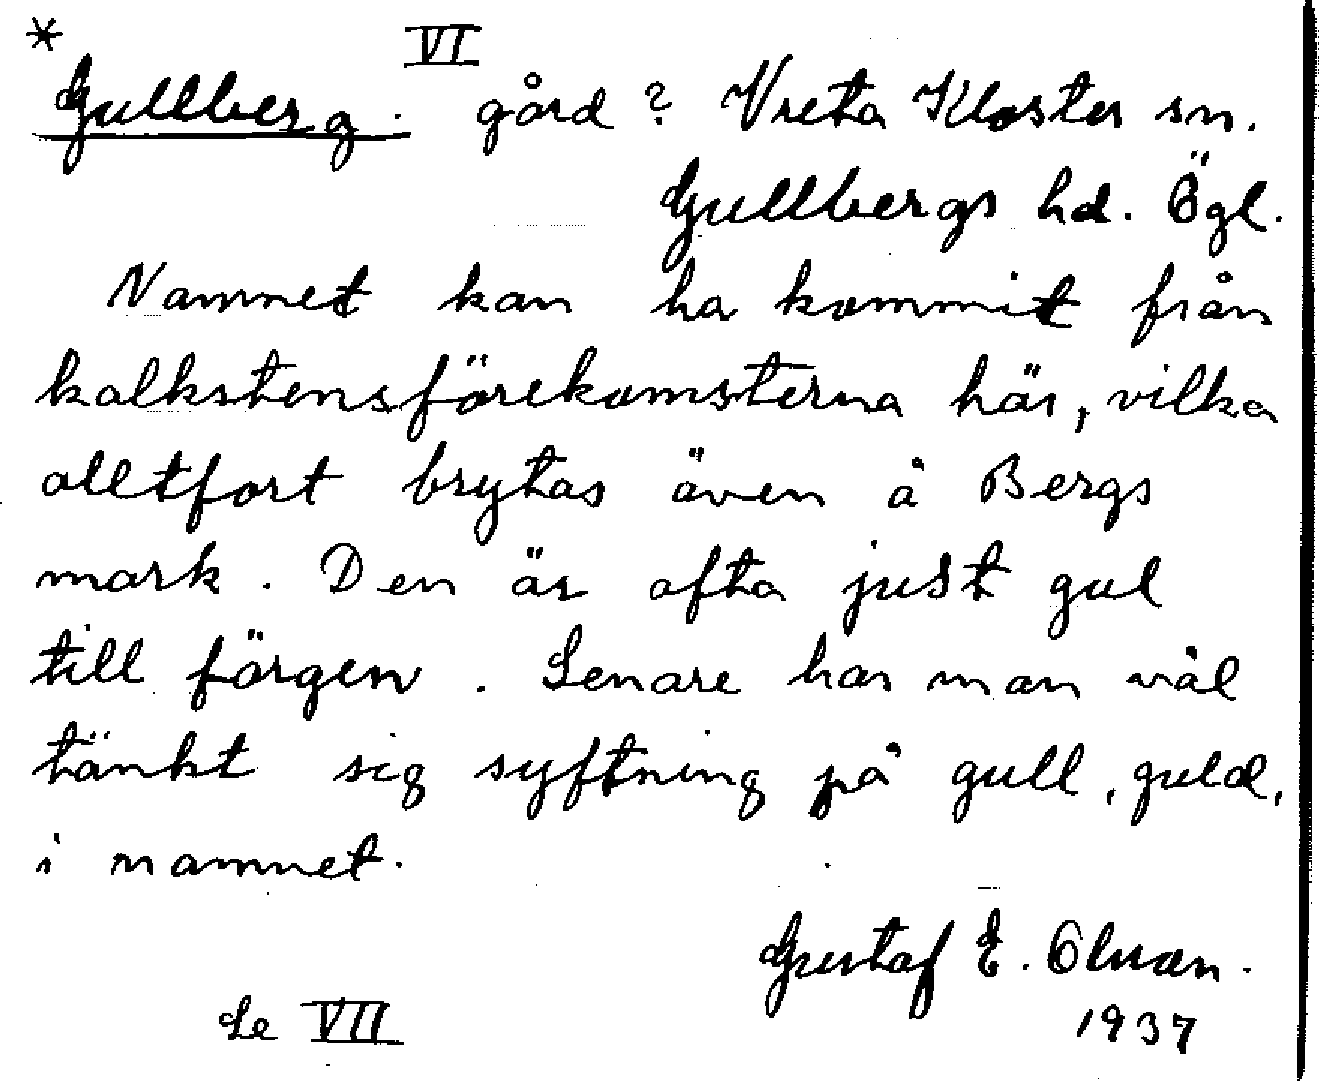 * VI
Gullberg. gård? Vreta Kloster sn.
Gullbergs hd. Ögl.
Namnet kan ha kommit från
kalkstensförekomsterna här, vilka
alltfort brytas även å Bergs
mark. Den är ofta just gul
till färgen. Senare har man väl
tänkt sig syftning på gull, guld,
i namnet.
Gustaf E. Olsson.
Se VII 1937